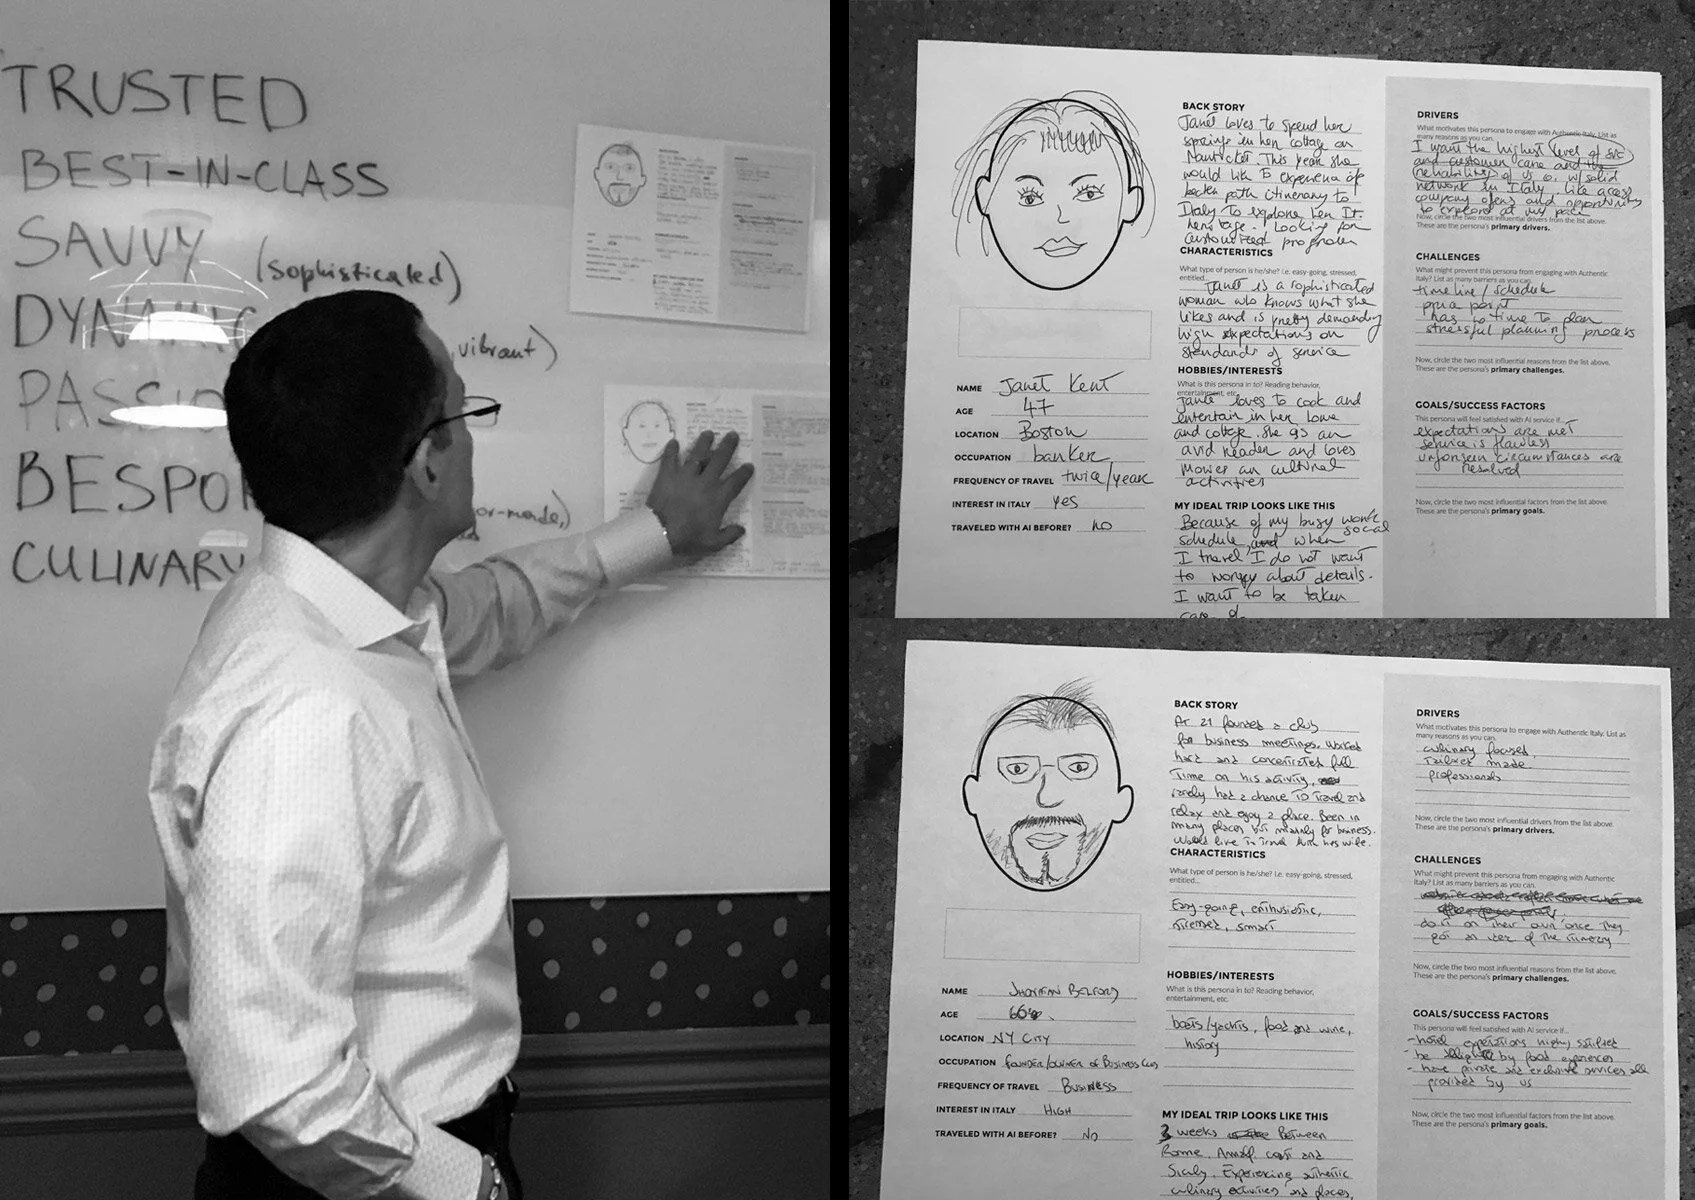 TRUSTED
BEST-IN-CLASS
SAVVY
(sophisticated)
vibrant)
BESPO
or-made,)
CULINARY
BACK STORY
Janet loves to spend her
springs in her cottage on
Nantucket. This year she
would like to experience of
path itinerary to
Italy to explore her It.
heritage. Looking for
customized program
CHARACTERISTICS
What type of person is he/she? i.e. easy-going, stressed,
entitled...
Janet is a sophisticated
woman who knows what she
likes and is pretty demanding
high expectations on
standards of service
HOBBIES/INTERESTS
What is this persona in to? Reading behavior,
entertainment, etc.
Janet loves to cook and
entertain in her home
and cottage. She is an
avid reader and loves
movies and cultural
activities
MY IDEAL TRIP LOOKS LIKE THIS
Because of my busy work
social
schedule, and when
I travel I do not want
to worry about details.
I want to be taken
care of.
NAME Janet Kent
AGE 47
LOCATION Boston
OCCUPATION banker
FREQUENCY OF TRAVEL twice/year
INTEREST IN ITALY yes
TRAVELED WITH AI BEFORE? no
DRIVERS
What motivates this persona to engage with Authentic Italy. List as
many reasons as you can.
I want the highest level of svc
and customer care and the
reliability of us w/solid
network in Italy. like access
company offers and opportunity
to explore at my pace
Now, circle the two most influential drivers from the list above.
These are the persona's primary drivers.
CHALLENGES
What might prevent this persona from engaging with Authentic
Italy? List as many barriers as you can.
timeline/schedule
price point
has no time to plan
stressful planning process
Now, circle the two most influential reasons from the list above.
These are the persona's primary challenges.
GOALS/SUCCESS FACTORS
This persona will feel satisfied with AI service if...
expectations are met
service is flawless
unforseen circumstances are
resolved
Now, circle the two most influential factors from the list above.
These are the persona's primary goals.
BACK STORY
At 21 founded a club
for business meetings. Worked
hard and concentrated full
time on his activity,
rarely had a chance to travel and
relax and enjoy a place. Been in
many places but mainly for business.
Would like to travel with his wife.
CHARACTERISTICS
What type of person is he/she? i.e. easy-going, stressed,
entitled...
Easy-going, enthusiastic,
stressed, smart
HOBBIES/INTERESTS
What is this persona in to? Reading behavior,
entertainment, etc.
boats/yachts, food and wine,
history
MY IDEAL TRIP LOOKS LIKE THIS
3 weeks Between
Rome, Amalfi coast and
Sicily. Experiencing authentic
culinary activities and places,
NAME Jhonatan Belford
AGE 60
LOCATION NY CITY
OCCUPATION FOUNDER/OWNER OF BUSINESS Club
FREQUENCY OF TRAVEL BUSINESS
INTEREST IN ITALY HIGH
TRAVELED WITH AI BEFORE? No
DRIVERS
What motivates this persona to engage with Authentic Italy. List as
many reasons as you can.
culinary focused
tailored made
professionals
Now, circle the two most influential drivers from the list above.
These are the persona's primary drivers.
CHALLENGES
What might prevent this persona from engaging with Authentic
Italy? List as many barriers as you can.
do it on their own once they
got an idea of the itinerary
Now, circle the two most influential reasons from the list above.
These are the persona's primary challenges.
GOALS/SUCCESS FACTORS
This persona will feel satisfied with AI service if...
- hotel expectations highly satisfied
- be delighted by food experiences
- have private and exclusive services all
provided by us
Now, circle the two most influential factors from the list above.
These are the persona's primary goals.